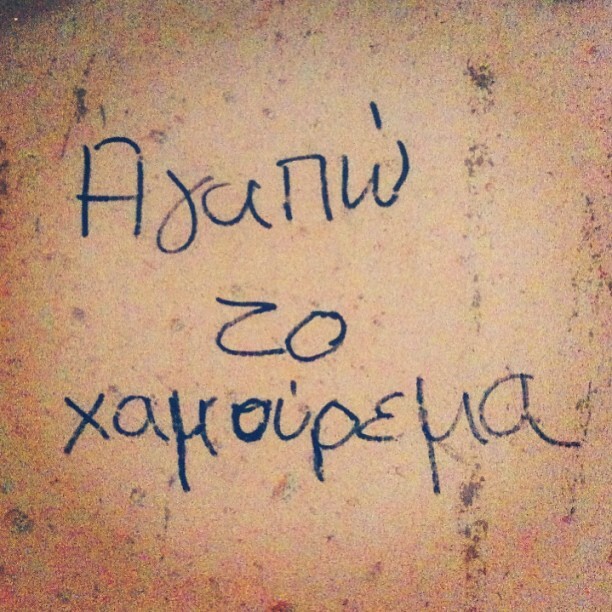 Αγαπώ
το
χαμούρεμα